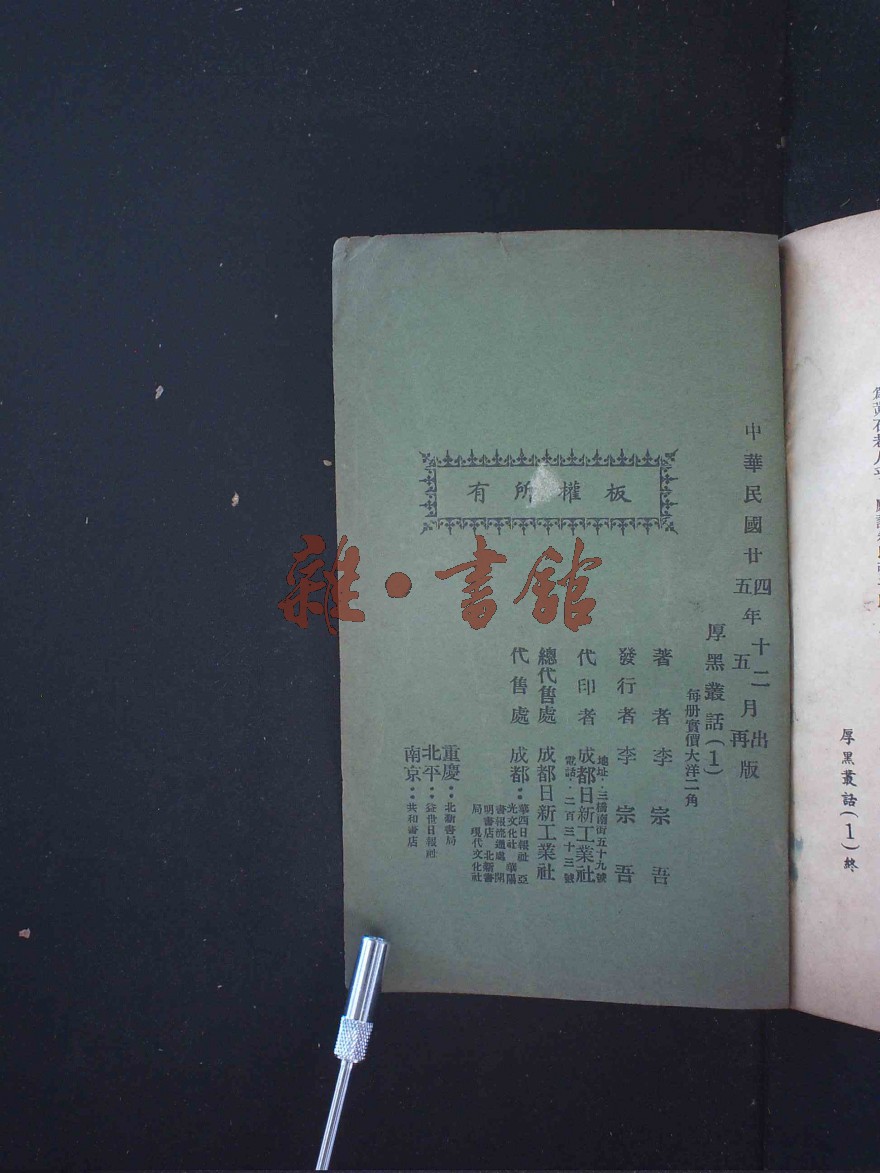 中華民國廿四年十二月出版
五年五月再版
厚黑叢話(1)
每册實價大洋二角
著者 李宗吾
發行者 李宗吾
代印者 成都日新工業社
地址·三橋南街五十九號
電話·二百三十三號
總代售處 成都日新工業社
代售處 成都··華西日報社 亞
光文化社 華陽
書報流通處 開
明書店 北新書
局 現代文化社
重慶··北新書局
北平··益世日報社
南京··共和書店
板權所有
雜·書館
厚黑叢話(1)終